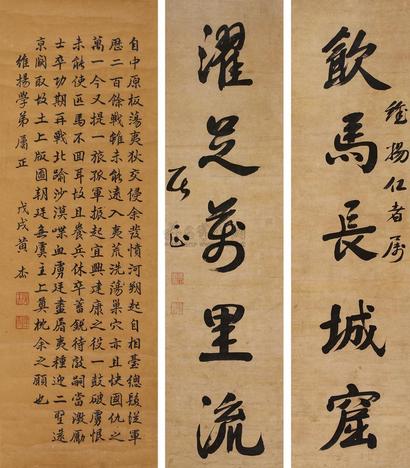 維揚仁者属
飲馬長城窟
濯足萬里流
属正
自中原板蕩夷狄交侵余發憤河朔起自相臺總髮從軍
歷二百餘戰雖未能遠入夷荒洗蕩巢穴亦且快國仇之
萬一今又提一旅孤軍振起宜興建康之役一鼓破虜恨
未能使匹馬不回耳故且養兵休卒蓄銳待敵嗣當激勵
士卒功期再戰北踰沙漠喋血虜廷盡屠夷種迎二聖還
京闕取故土上版圖朝廷無虞主上奠枕余之願也
維揚学弟属正
戊戌黃杰